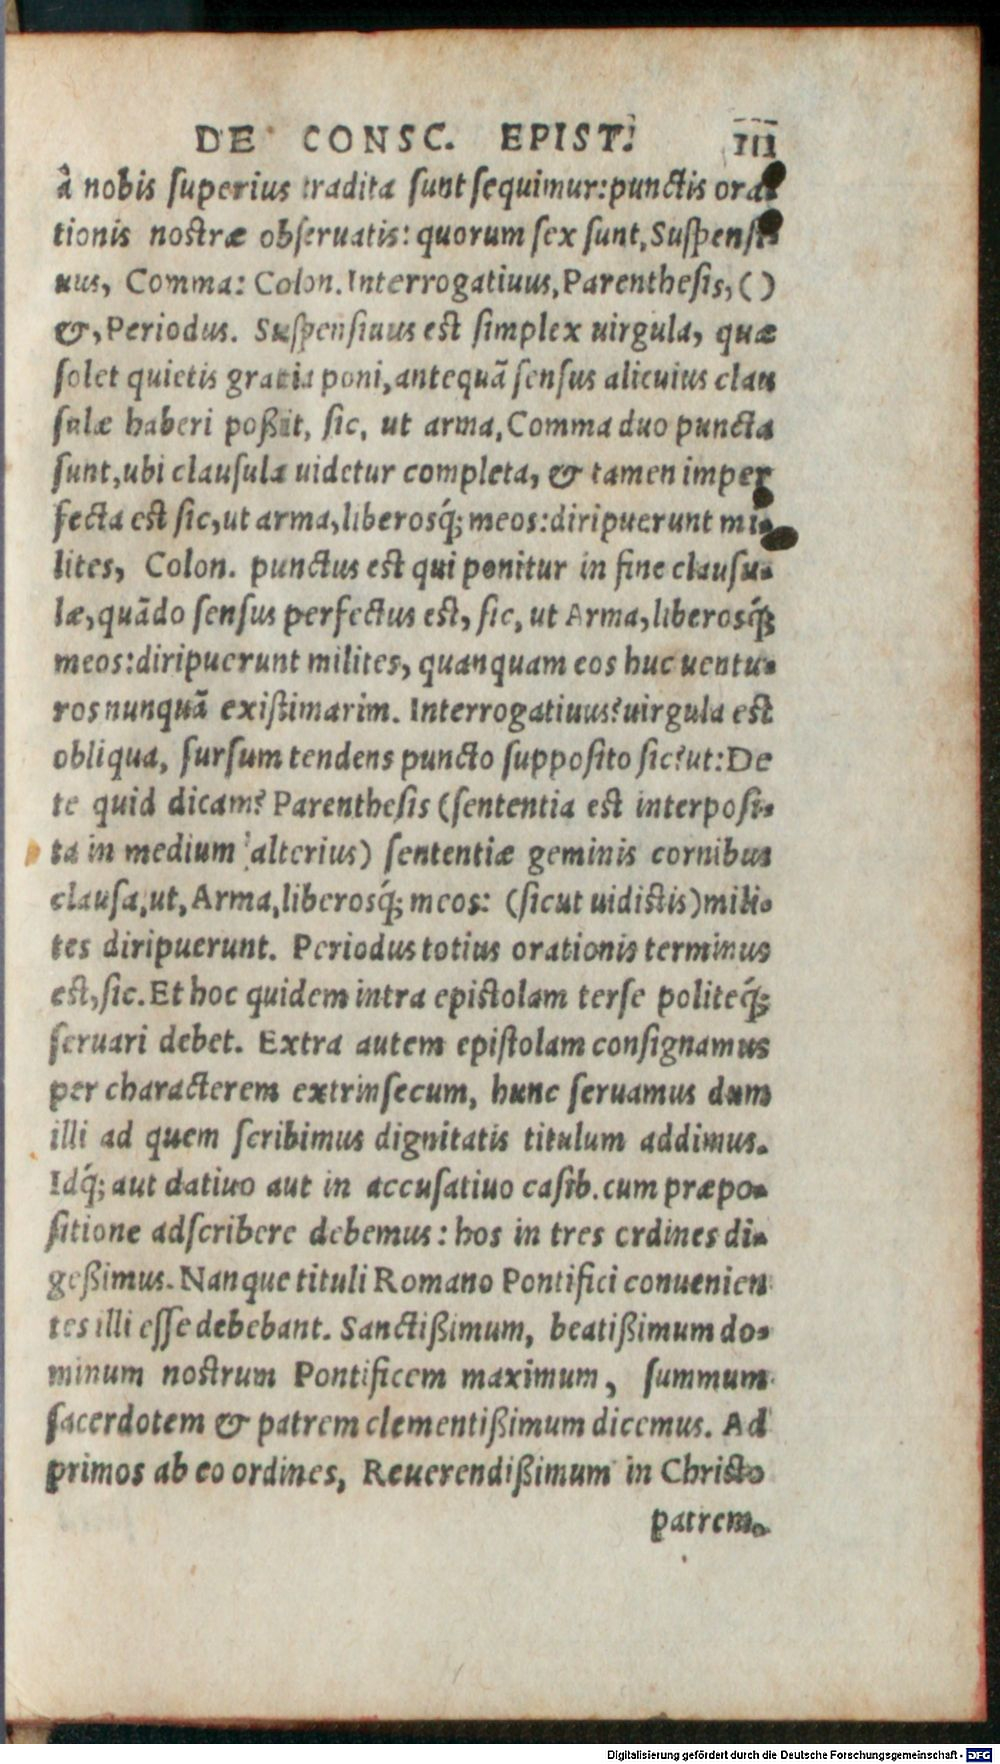 DE CONSC. EPIST. III
â nobis superius tradita sunt sequimur:punctis ora-
tionis nostræ obseruatis: quorum sex sunt, Suspensi-
uus, Comma: Colon. Interrogatiuus, Parenthesis, ()
&, Periodus. Suspensiuus est simplex uirgula, quæ
solet quietis gratia poni, antequã sensus alicuius clau
sulæ haberi poßit, sic, ut arma, Comma duo puncta
sunt, ubi clausula uidetur completa, & tamen imper
fecta est sic, ut arma, liberosq́; meos:diripuerunt mi-
lites, Colon. punctus est qui ponitur in fine clausu-
læ, quãdo sensus perfectus est, sic, ut Arma, liberosq́;
meos:diripuerunt milites, quanquam eos huc uentu-
ros nunquã existimarim. Interrogatiuus? uirgula est
obliqua, sursum tendens puncto supposito sic? ut: De
te quid dicam? Parenthesis (sententia est interposi-
ta in medium alterius) sententiæ geminis cornibus
clausa, ut, Arma, liberosq́; meos: (sicut uidistis) mili-
tes diripuerunt. Periodus totius orationis terminus
est, sic. Et hoc quidem intra epistolam terse politeq́;
seruari debet. Extra autem epistolam consignamus
per characterem extrinsecum, hunc seruamus dum
illi ad quem scribimus dignitatis titulum addimus.
Idq́; aut datiuo aut in accusatiuo casib. cum præpo-
sitione adscribere debemus: hos in tres crdines di-
geßimus. Nanque tituli Romano Pontifici conuenien
tes illi esse debebant. Sanctißimum, beatißimum do-
minum nostrum Pontificem maximum, summum
sacerdotem & patrem clementißimum dicemus. Ad
primos ab eo ordines, Reuerendißimum in Christo
patrem.
Digitalisierung gefördert durch die Deutsche Forschungsgemeinschaft - DFG